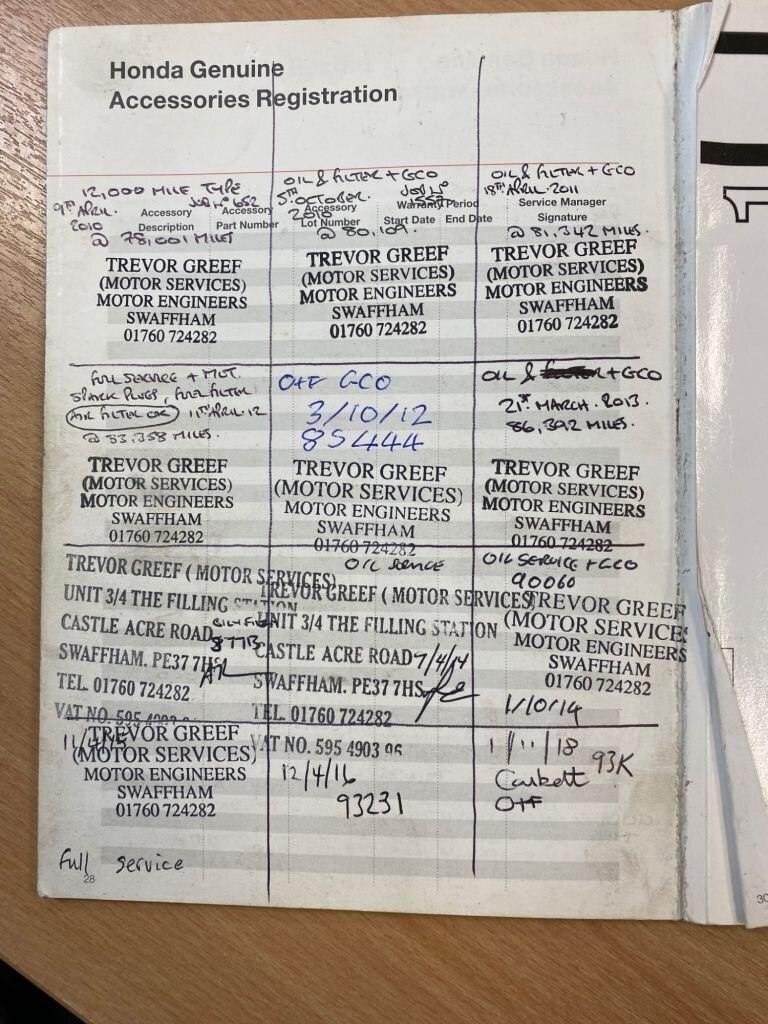 Honda Genuine
Accessories Registration
12,000 MILE TYPE
JOB Nº 652
9TH APRIL.
2010
Accessory
Description
Accessory
Part Number
@ 78,001 MILES
TREVOR GREEF
(MOTOR SERVICES)
MOTOR ENGINEERS
SWAFFHAM
01760 724282
OIL & FILTER + GCO
5TH OCTOBER.
JOB Nº
2010
Accessory
Lot Number
Warranty Period
Start Date End Date
@ 80,109.
TREVOR GREEF
(MOTOR SERVICES)
MOTOR ENGINEERS
SWAFFHAM
01760 724282
OIL & FILTER + GCO
18TH APRIL 2011
Service Manager
Signature
@ 81,342 MILES.
TREVOR GREEF
(MOTOR SERVICES)
MOTOR ENGINEERS
SWAFFHAM
01760 724282
FULL SERVICE + MOT.
SPARK PLUGS, FUEL FILTER
AIR FILTER OK 11TH APRIL 12
@ 83,358 MILES.
TREVOR GREEF
(MOTOR SERVICES)
MOTOR ENGINEERS
SWAFFHAM
01760 724282
O+F GCO
3/10/12
85444
TREVOR GREEF
(MOTOR SERVICES)
MOTOR ENGINEERS
SWAFFHAM
01760 724282
OIL & + GCO
21ST MARCH. 2013.
86,392 MILES.
TREVOR GREEF
(MOTOR SERVICES)
MOTOR ENGINEERS
SWAFFHAM
01760 724282
TREVOR GREEF (MOTOR SERVICES)
UNIT 3/4 THE FILLING STATION
CASTLE ACRE ROAD
SWAFFHAM. PE37 7HS
TEL. 01760 724282
VAT NO. 595 4903
OIL SERVICE
TREVOR GREEF (MOTOR SERVICES)
UNIT 3/4 THE FILLING STATION
CASTLE ACRE ROAD 7/4/14
SWAFFHAM. PE37 7HS
TEL. 01760 724282
VAT NO. 595 4903 06
OIL SERVICE + GCO
90060
TREVOR GREEF
(MOTOR SERVICES
MOTOR ENGINEERS
SWAFFHAM
01760 724282
1/10/14
11/4/15
TREVOR GREEF
(MOTOR SERVICES)
MOTOR ENGINEERS
SWAFFHAM
01760 724282
Full Service
28
12/4/16
93231
1/11/18
93K
O+F
30